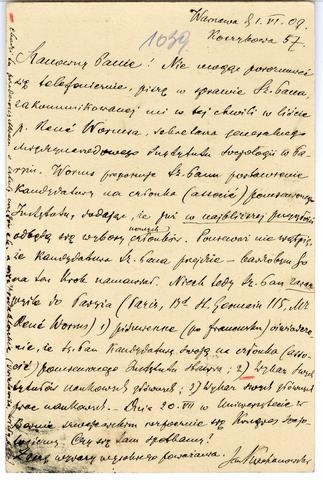 Warszawa d. 1. VI. 09.
Koszykowa 57.
1039
Szanowny Panie! Nie mogąc porozumieć
się telefonicznie, piszę w sprawie Sz. Pana
zakomunikowanej mi w tej chwili w liście
p. René Wormsa, sekretarza generalnego
Międzynarodowego Instytutu Socjologii w Pa-
ryżu. Worms proponuje Sz. Panu postawienie
kandydatury na członka (associé) pomienionego
Instytutu, dodając, że już w najbliższej przyszłości
odbędą się wybory nowych członków. Ponieważ nie wątpię,
że kandydatura Sz. Pana przejdzie
na ten krok namawiać. Niech tedy Sz. Pan
do Paryża (Paris, Bd St. Germain 115, Mr
René Worms) 1) piśmienne (po francusku) oświadcze-
nie, że Sz. Pan kandydaturę swoją na członka (asso-
cié) pomienionego Instytutu stawia; 2) Wykaz swoich
tytułów naukowych głównych; 3) Wykaz swoich głównych
prac naukowych. Dnia 20. VII w Uniwersytecie
rozpocznie się Kongres socjo-
logiczny. Czy się tam spotkamy?
Łączę wyrazy wysokiego poważania.